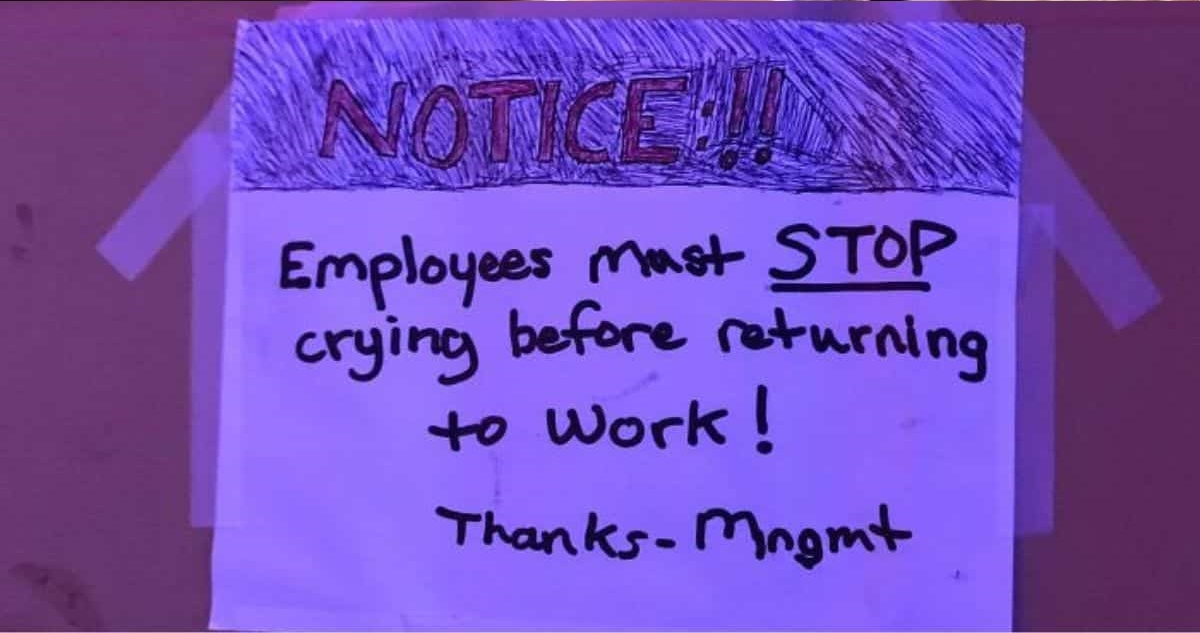 NOTICE:!!
Employees must STOP
crying before returning
to work!
Thanks - Mngmt